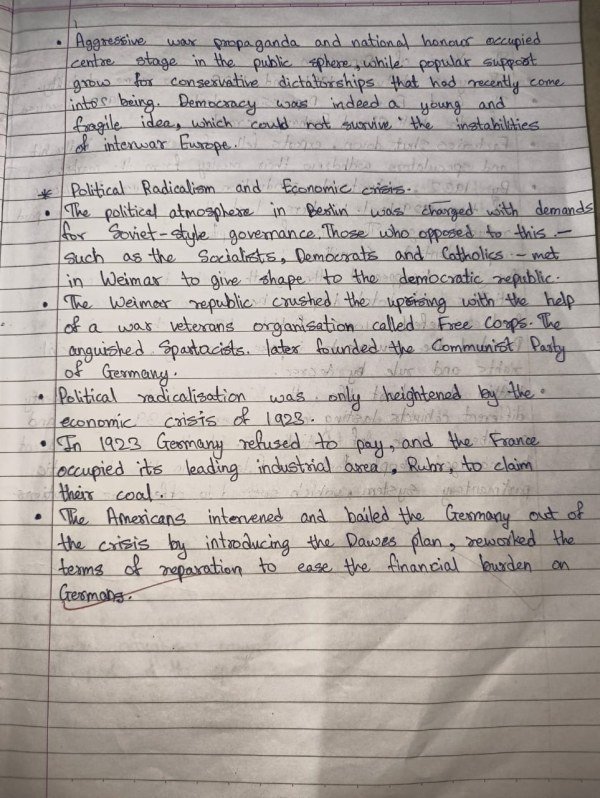 • Aggressive war propaganda and national honour occupied
centre stage in the public sphere, while popular support
grow for conservative dictatorships that had recently come
into being. Democracy was indeed a young and
fragile idea, which could not survive the instabilities
of interwar Europe.
* Political Radicalism and Economic crisis.
• The political atmosphere in Berlin was charged with demands
for Soviet-style governance. Those who opposed to this –
such as the Socialists, Democrats and Catholics – met
in Weimar to give shape to the democratic republic.
• The Weimar republic crushed the uprising with the help
of a war veterans organisation called Free Corps. The
anguished Spartacists later founded the Communist Party
of Germany.
• Political radicalisation was only heightened by the
economic crisis of 1923.
• In 1923 Germany refused to pay, and the France
occupied its leading industrial area, Ruhr, to claim
their coal.
• The Americans intervened and bailed the Germany out of
the crisis by introducing the Dawes plan, reworked the
terms of reparation to ease the financial burden on
Germans.